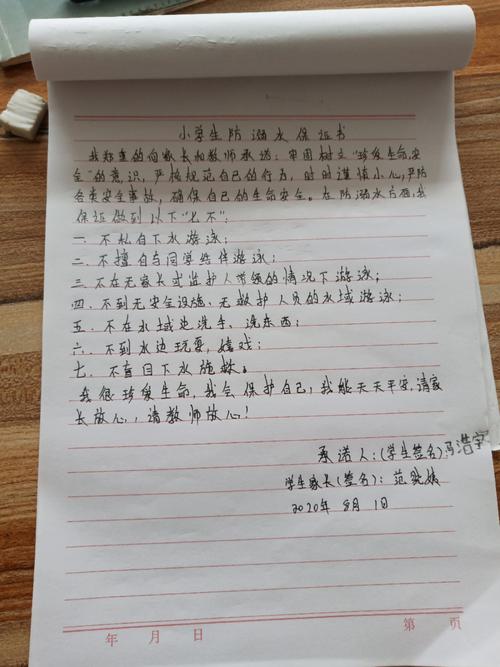 小学生防溺水保证书
我郑重的向家长和教师承诺：牢固树立"珍爱生命，安
全"的意识，严格规范自己的行为，时时谨慎小心，严防
各类安全事故，确保自己的生命安全。在防溺水方面，我
保证做到以下"七不"：
一、不私自下水游泳；
二、不擅自与同学结伴游泳；
三、不在无家长或监护人带领的情况下游泳；
四、不到无安全设施、无救护人员的水域游泳；
五、不在水域边洗手、洗东西；
六、不到水边玩耍、嬉戏；
七、不盲目下水施救。
我很珍爱生命，我会保护自己，我能天天平安，请家
长放心，请教师放心！
承诺人：（学生签名）冯浩宇
学生家长（签名）：范
2020年8月1日
年 月 日 第 页